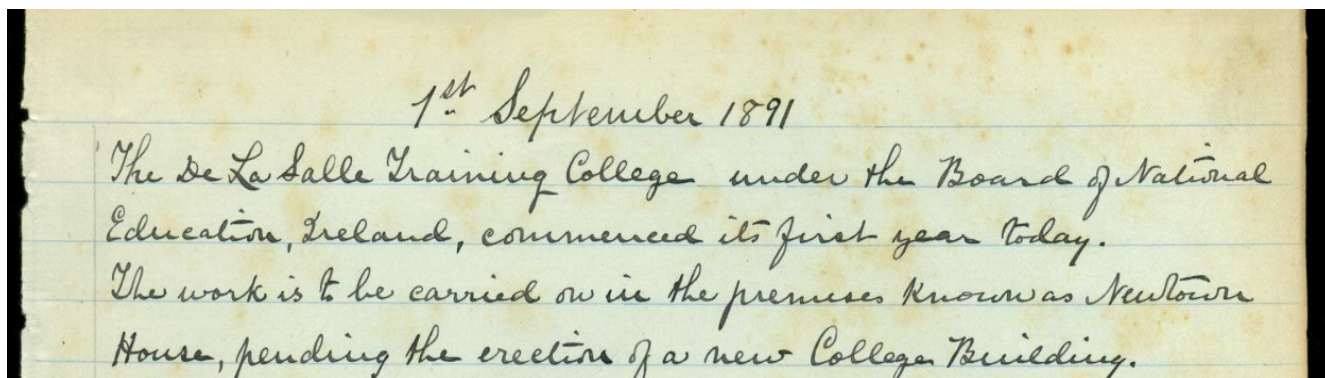 1st September 1891
The De La Salle Training College under the Board of National
Education, Ireland, commenced its first year today.
The work is to be carried on in the premises known as Newtown
House, pending the erection of a new College Building.